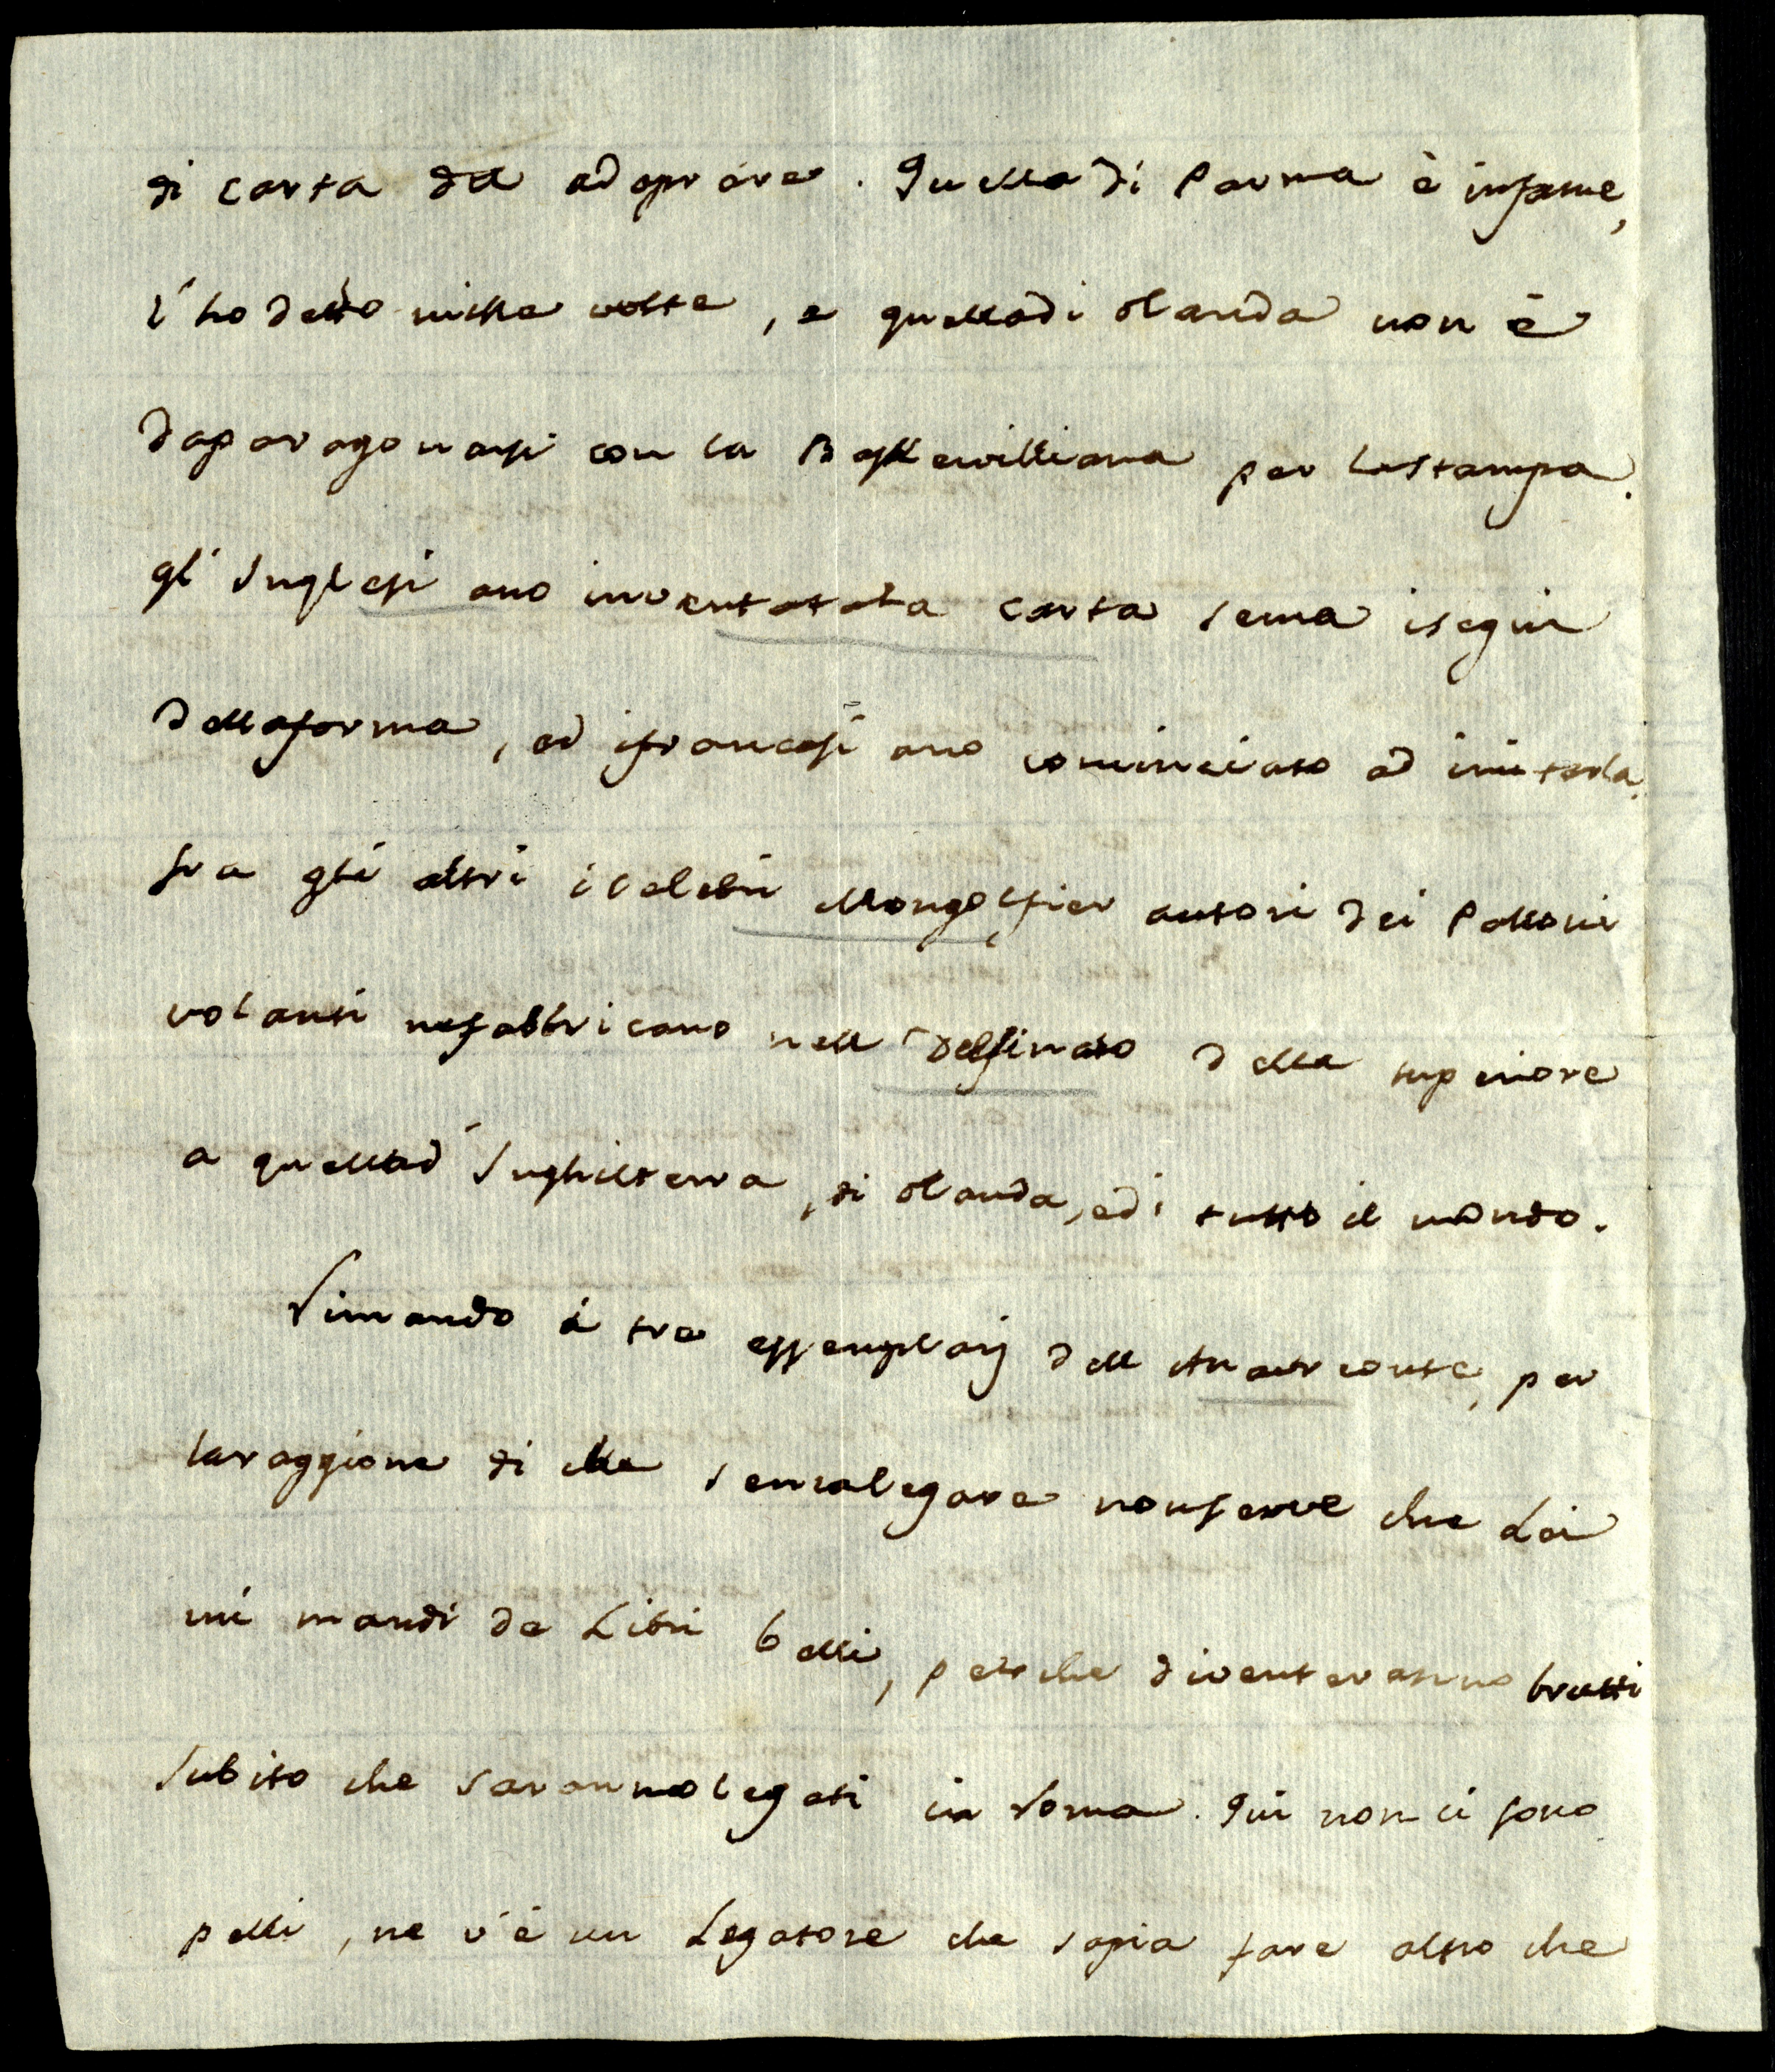 di carta da adoprare. Quella di Parma è infame,
l'ho detto mille volte, e quella di olanda non è
da paragonarsi con la Baskervilliana per la stampa.
gl'Inglesi ano inventata la carta senza i segni
della forma, ed i francesi ano cominciato ad imitarla.
fra gli altri i celebri Mongolfier autori dei Palloni
volanti ne fabbricano nell Delfinato della superiore
a quella d'Inghilterra, di olanda, e di tutto il mondo.
Rimando i tre essemplarj dell Anacreonte, per
la raggione di che senza legare non serve che Lei
mi mandi de Libri belli, perche diventeranno brutti
subito che saranno legati in Roma. Qui non ci sono
pelli, ne v'è un Legatore che sapia fare altro che